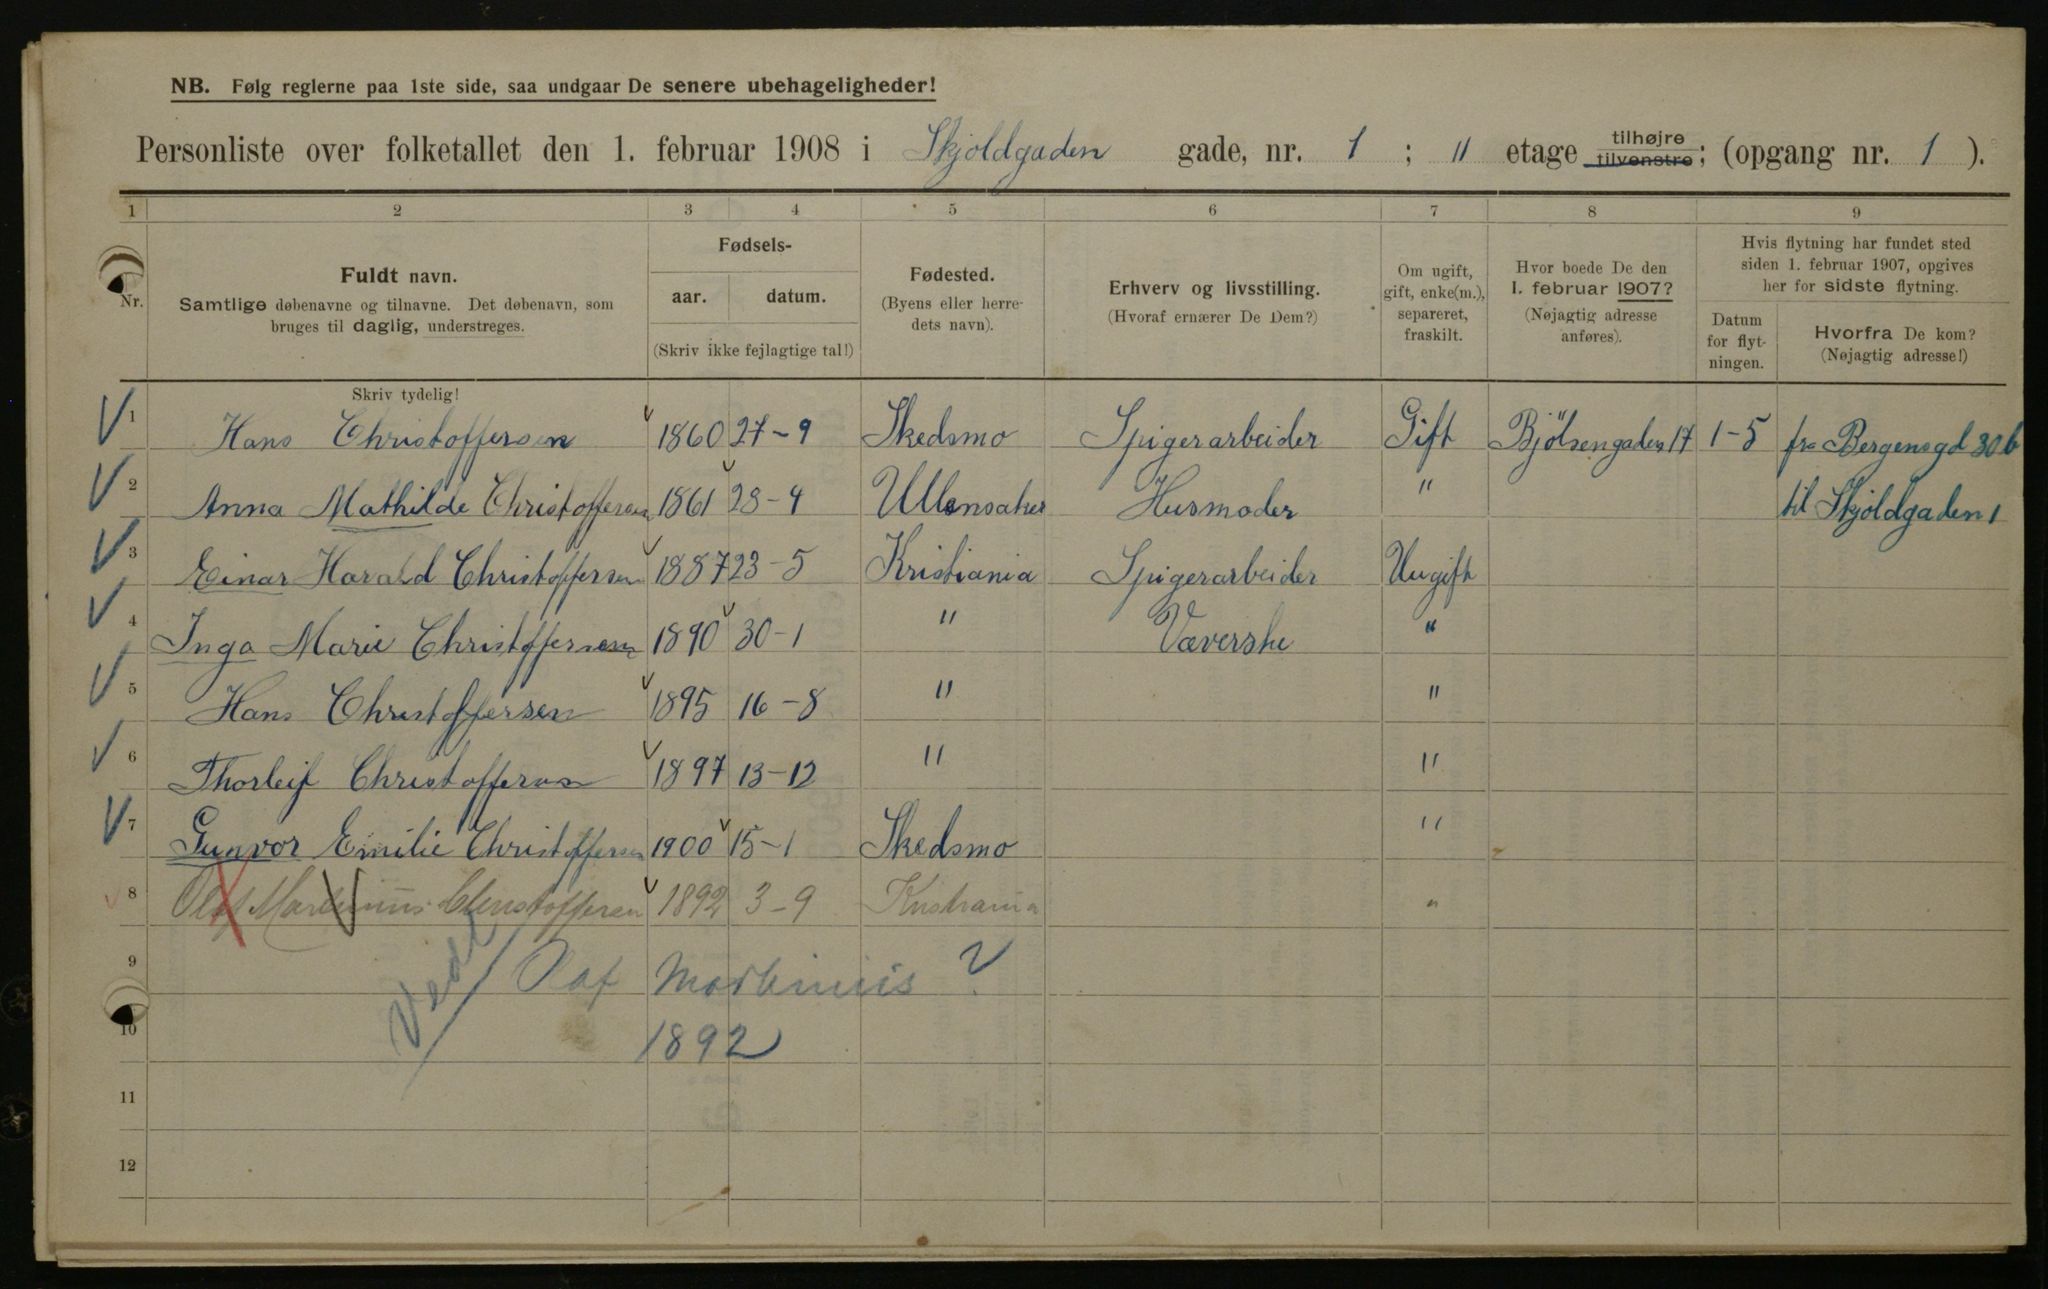 NB. Følg reglerne paa 1ste side, saa undgaar De senere ubehageligheder!
Personliste over folketallet den 1. februar 1908 i Skjoldgaden gade, nr. 1 ; II etage tilhøjre tilvenstre; (opgang nr. 1 ).
1 2 3 4 5 6 7 8 9
Nr.
Fuldt navn.
Samtlige døbenavne og tilnavne. Det døbenavn, som
bruges til daglig, understreges.
Skriv tydelig!
Fødsels-
aar. datum.
(Skriv ikke fejlagtige tal!)
Fødested.
(Byens eller herre-
dets navn).
Erhverv og livsstilling.
(Hvoraf ernærer De Dem?)
Om ugift,
gift, enke(m.),
separeret,
fraskilt.
Hvor boede De den
1. februar 1907?
(Nøjagtig adresse
anføres).
Hvis flytning har fundet sted
siden 1. februar 1907, opgives
her for sidste flytning.
Datum
for flyt-
ningen.
Hvorfra De kom?
(Nøjagtig adresse!)
1 Hans Christoffersen 1860 27-9 Skedsmo Spigerarbeider Gift Bjölsengaden 17 1-5 fra Bergensgd 30b
2 Anna Mathilde Christoffersen 1861 28-4 Ullensaker Husmoder " til Skjoldgaden 1
3 Einar Harald Christoffersen 1887 23-5 Kristiania Spigerarbeider Ungift
4 Inga Marie Christoffersen 1890 30-1 " Væverske "
5 Hans Christoffersen 1895 16-8 " "
6 Thorleif Christoffersen 1897 13-12 " "
7 Gunvor Emilie Christoffersen 1900 15-1 Skedsmo "
8 Olaf Martinius Christoffersen 1892 3-9 Kristiania "
9 Olaf Martinius ?
10 1892
11
12